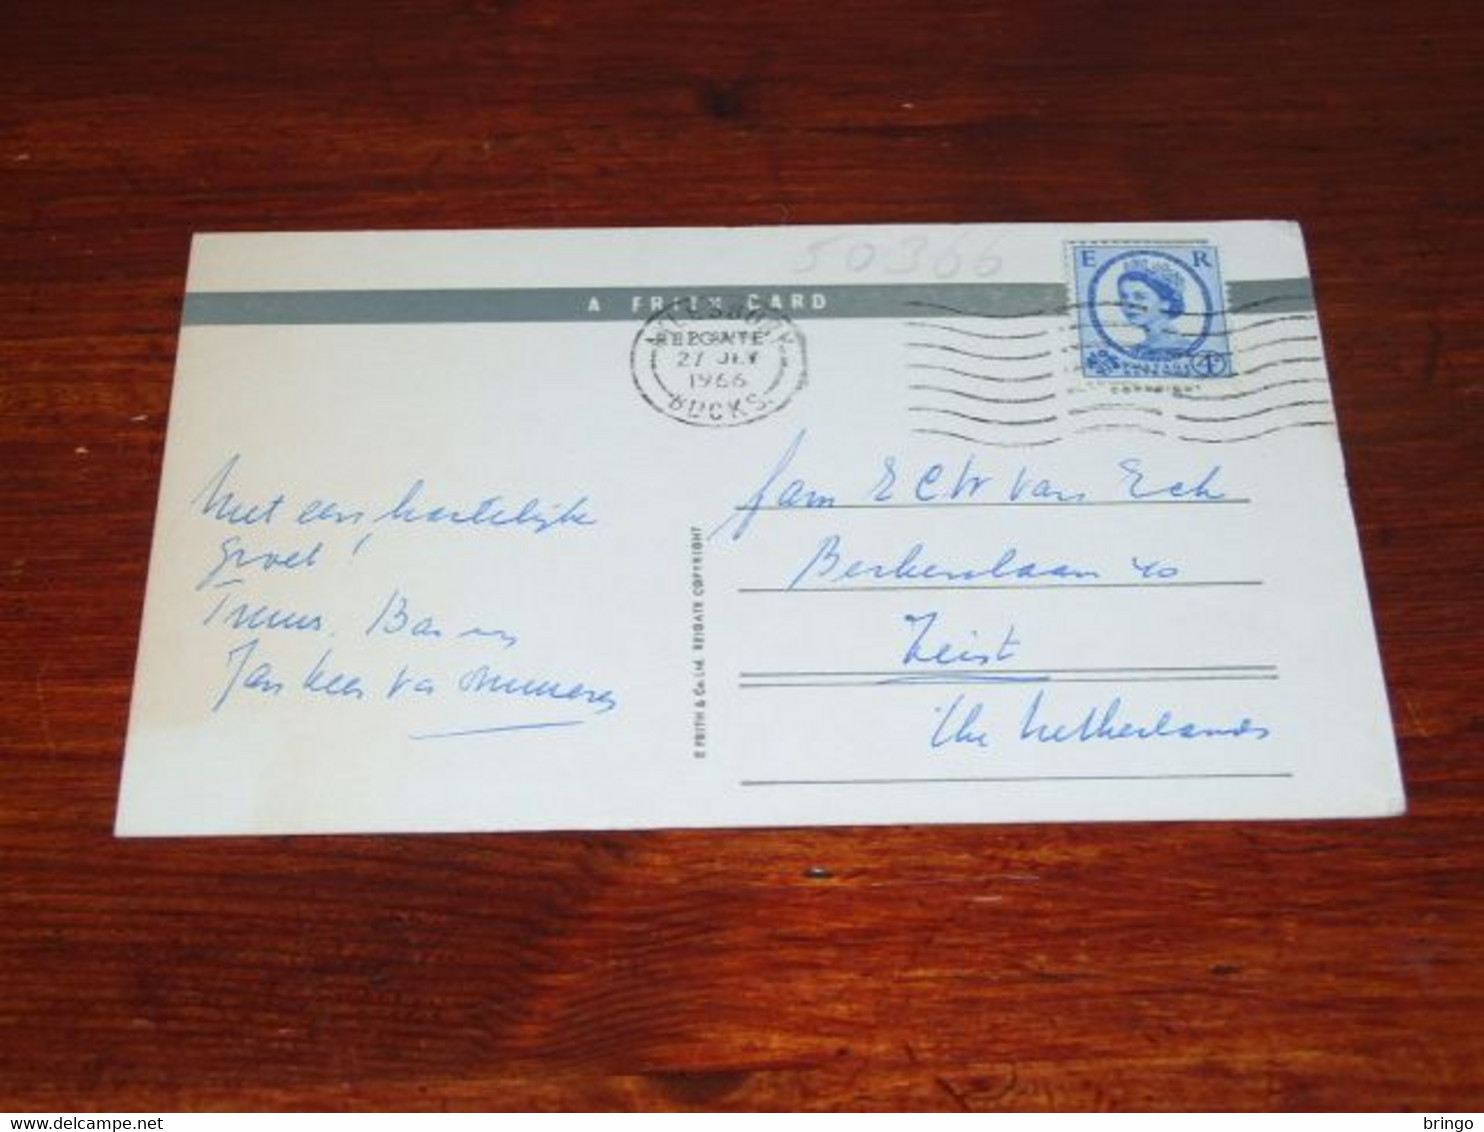 50366
A FRITH CARD
E R
AYLESBURY
REIGATE
27 JLY
1966
BUCKS.
COPYRIGHT
Met een hartelijke
groet!
Truus, Bas en
Jan Kees van
Fam E C W van Eck
Berkenlaan 40
Zeist
The Netherlands
F FRITH & Co. Ltd. REIGATE COPYRIGHT
delcampe.net
bringo